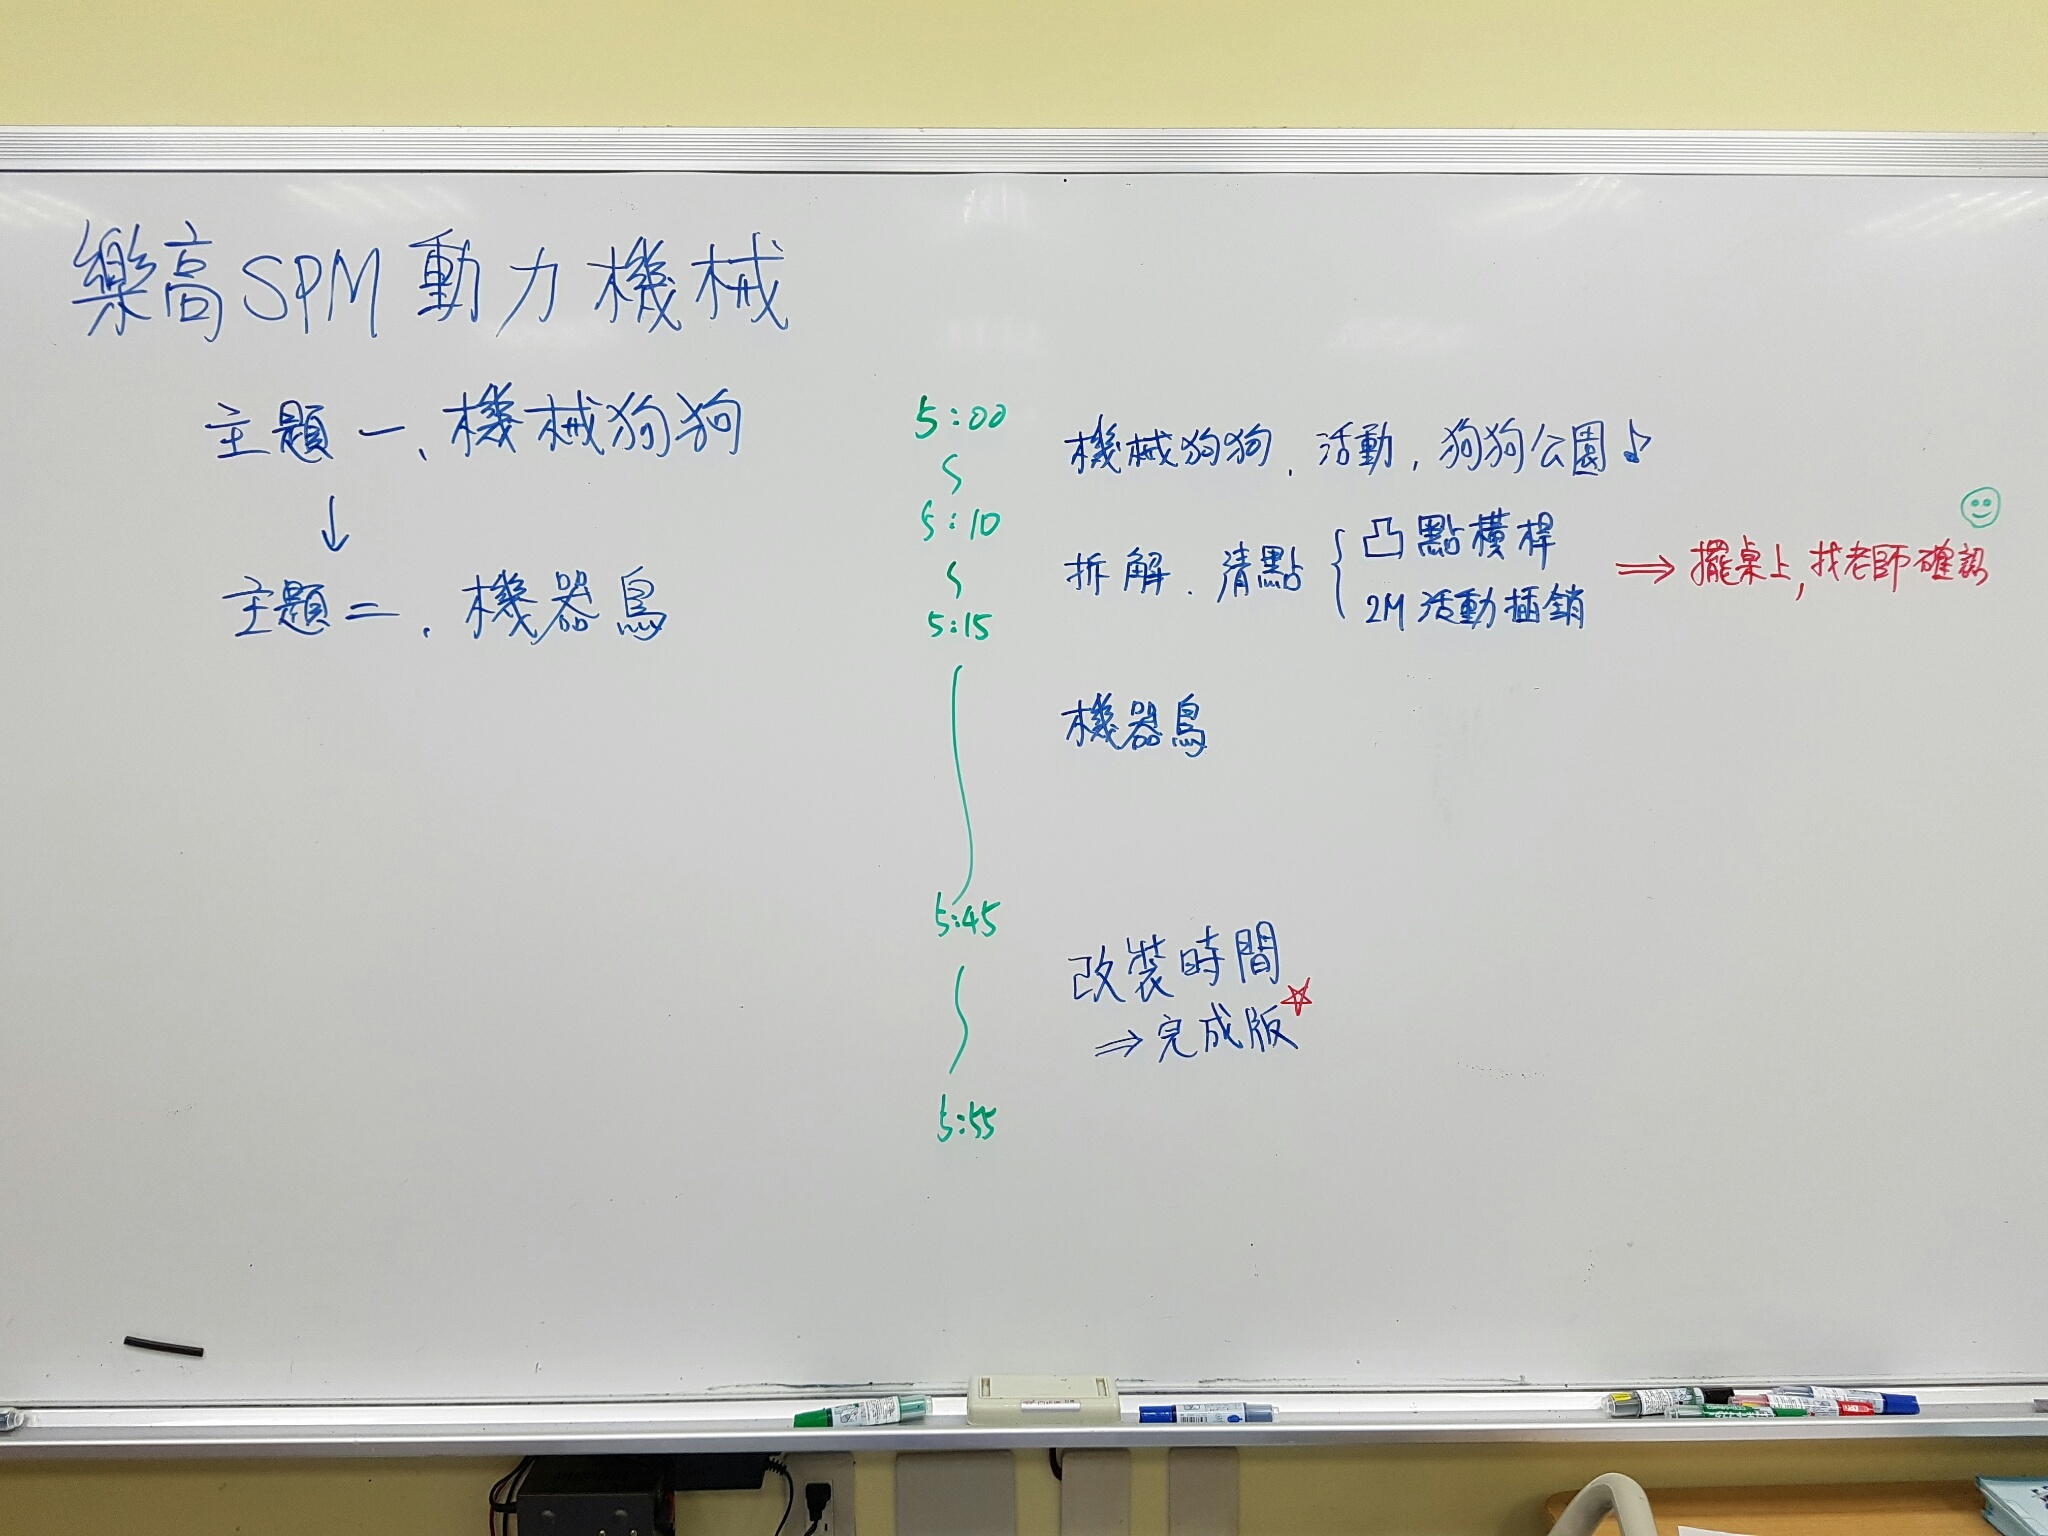 樂高SPM動力機械
主題一、機械狗狗
↓
主題二、機器鳥
5:00
機械狗狗、活動，狗狗公園♪
5:10
拆解、清點 { 凸點橫桿
2M活動插銷
⇒ 擺桌上,找老師確認
5:15
機器鳥
5:45
改裝時間
⇒完成版☆
5:55